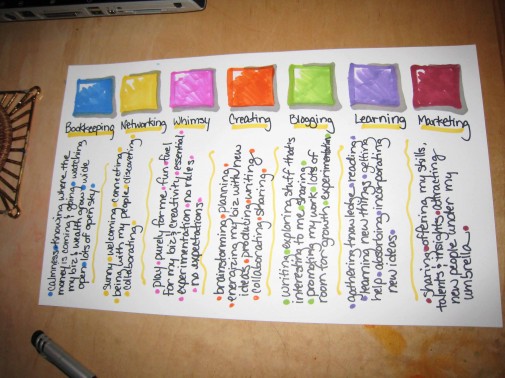 Bookkeeping Networking Whimsy Creating Blogging Learning Marketing
• calmness • knowing where me
money is coming & going • watching
my biz & wealth grow • wide
open • lots of options
• sunny • welcoming • connecting
being with my people • discovering
collaborating
• play • purely for me • fun • fuel
for my biz & creativity • essential
experimentation • no rules
no expectations
brainstorming • planning
energizing my biz with new
ideas • producing • writing
• collaborating • sharing
• writing • exploring stuff that's
interesting to me • sharing
promoting my work • lots of
room for growth • experimentation
• gathering knowledge • reading
learning new things • getting
help • incorporating
new ideas
• sharing • offering my skills,
talents & insights • attracting
new people under my
umbrella